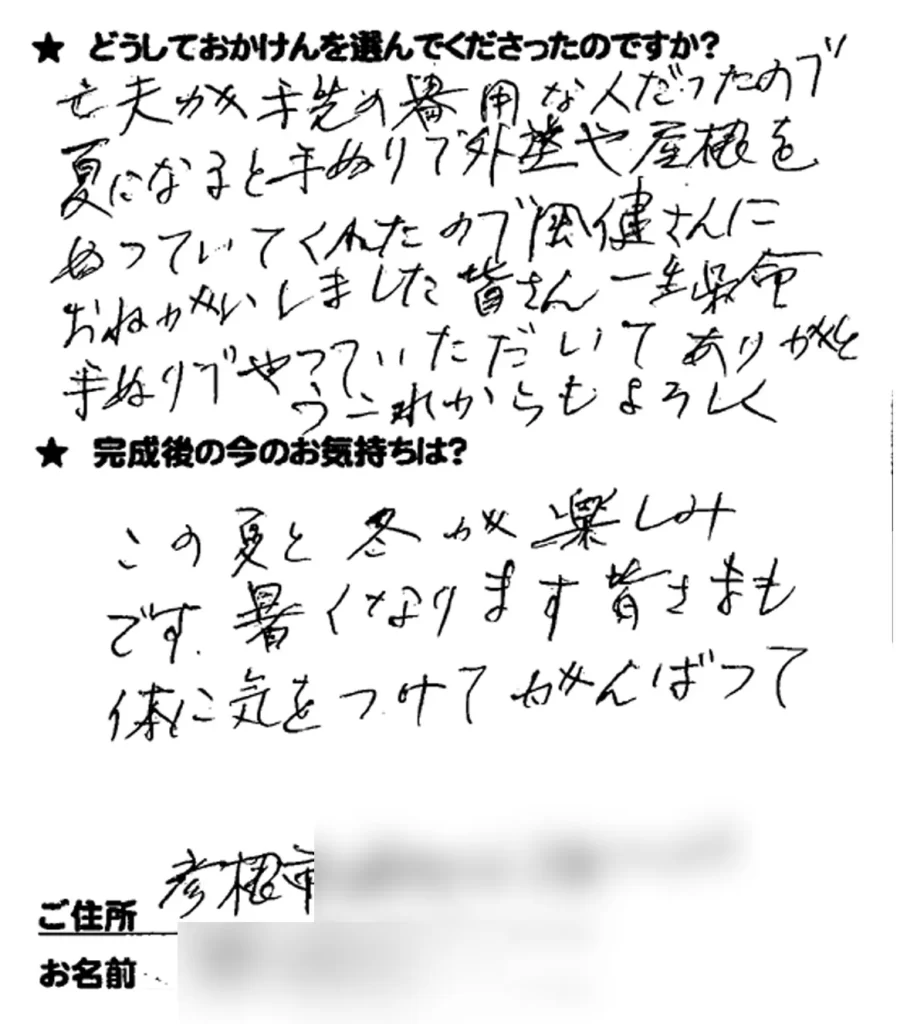 ★ どうしておかけんを選んでくださったのですか?
亡夫が手先の器用な人だったので
夏になると手ぬりで外壁や屋根を
ぬっていてくれたので岡健さんに
おねがいしました皆さん一生懸命
手ぬりでやっていただいてありがと
うこれからもよろしく
★ 完成後の今のお気持ちは?
この夏と冬が楽しみ
です.暑くなります皆さまも
体に気をつけてがんばって
彦根市
ご住所
お名前